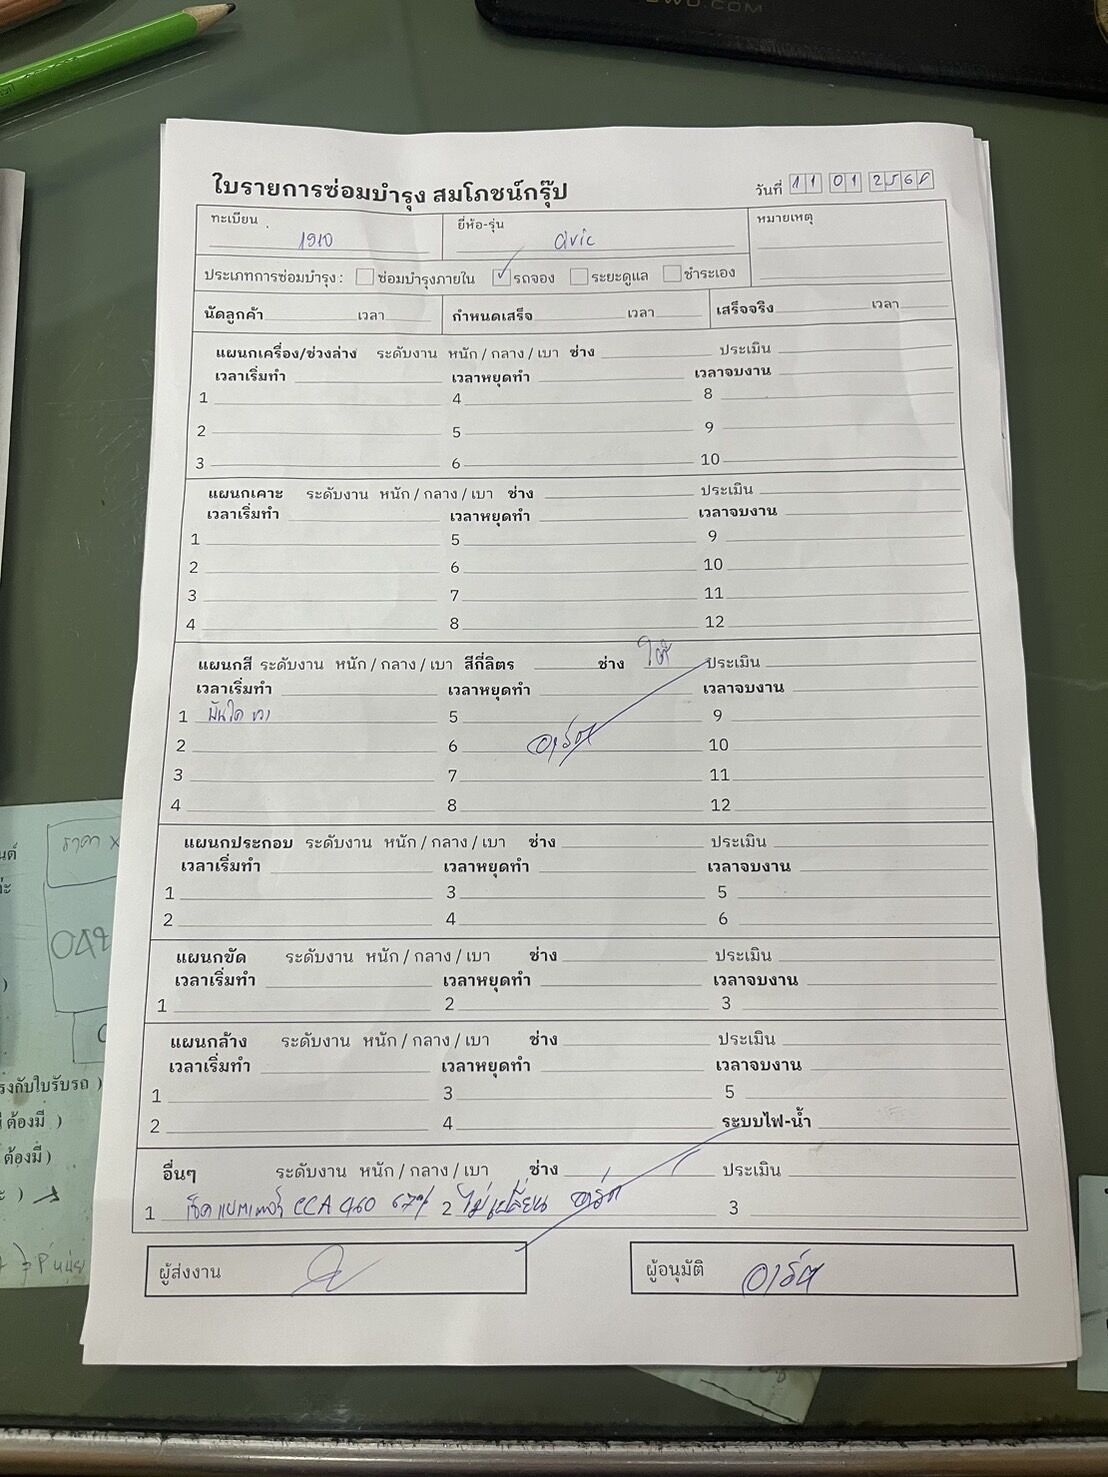 ใบรายการซ่อมบำรุง สมโภชน์กรุ๊ป
วันที่ 11 01 2568
ทะเบียน 1910
ยี่ห้อ-รุ่น civic
หมายเหตุ
ประเภทการซ่อมบำรุง : ซ่อมบำรุงภายใน ✓ รถจอง ระยะดูแล ชำระเอง
นัดลูกค้า เวลา กำหนดเสร็จ เวลา เสร็จจริง เวลา
แผนกเครื่อง/ช่วงล่าง ระดับงาน หนัก / กลาง / เบา ช่าง ประเมิน
เวลาเริ่มทำ เวลาหยุดทำ เวลาจบงาน
1 4 8
2 5 9
3 6 10
แผนกเคาะ ระดับงาน หนัก / กลาง / เบา ช่าง ประเมิน
เวลาเริ่มทำ เวลาหยุดทำ เวลาจบงาน
1 5 9
2 6 10
3 7 11
4 8 12
แผนกสี ระดับงาน หนัก / กลาง / เบา สีกี่ลิตร ช่าง ประเมิน
เวลาเริ่มทำ เวลาหยุดทำ เวลาจบงาน
1 บันได ขวา 5 9
2 6 อาร์ต 10
3 7 11
4 8 12
แผนกประกอบ ระดับงาน หนัก / กลาง / เบา ช่าง ประเมิน
เวลาเริ่มทำ เวลาหยุดทำ เวลาจบงาน
1 3 5
2 4 6
แผนกขัด ระดับงาน หนัก / กลาง / เบา ช่าง ประเมิน
เวลาเริ่มทำ เวลาหยุดทำ เวลาจบงาน
1 2 3
แผนกล้าง ระดับงาน หนัก / กลาง / เบา ช่าง ประเมิน
เวลาเริ่มทำ เวลาหยุดทำ เวลาจบงาน
1 3 5
2 4 ระบบไฟ-น้ำ
อื่นๆ ระดับงาน หนัก / กลาง / เบา ช่าง ประเมิน
1 เช็คแบตเตอรี่ CCA 460 67% 2 ไม่เปลี่ยน อาร์ต 3
ผู้ส่งงาน
ผู้อนุมัติ อาร์ต
ราคา x
รงกับใบรับรถ )
ต้องมี )
ต้องมี )